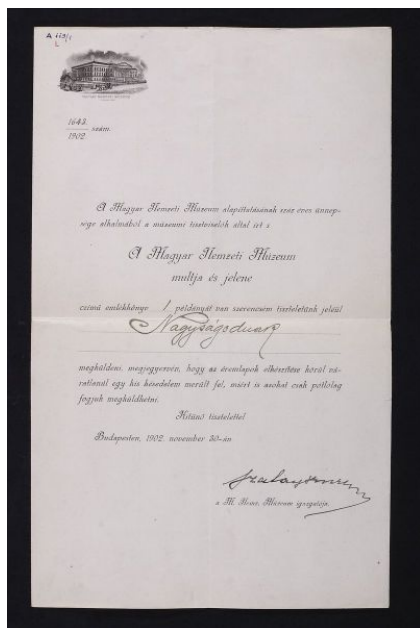 A 119/1
1643.
1902. szám.
A Magyar Nemzeti Múzeum alapíttatásának száz éves ünnep-
sége alkalmából a múzeumi tisztviselők által írt s
A Magyar Nemzeti Múzeum
multja és jelene
czímű emlékkönyv 1 példányát van szerencsém tiszteletünk jeléül
Nagyságodnak
megküldeni, megjegyezvén, hogy az éremlapok elkészítése körül vá-
ratlanúl egy kis késedelem merült fel, miért is azokat csak pótlólag
fogjuk megküldhetni.
Kitünő tisztelettel
Budapesten, 1902. november 30-án
Szalay Imre
a M. N. Múzeum igazgatója.